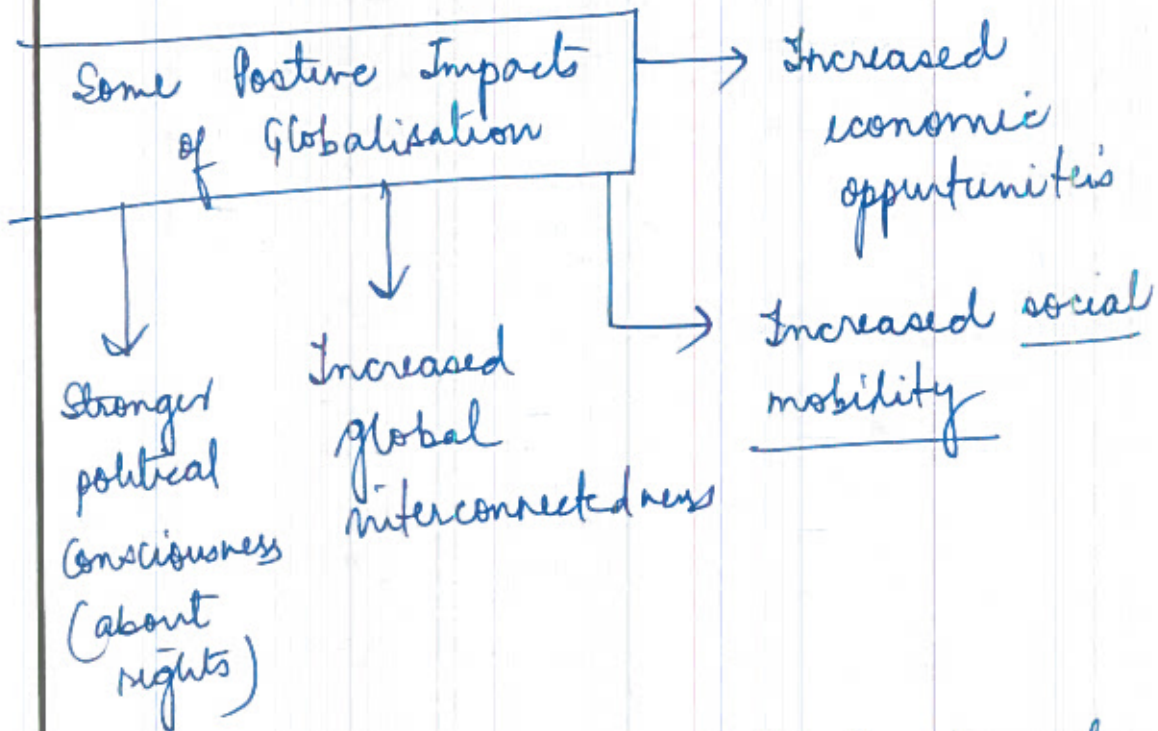 Some Postive Impacts
of Globalisation
Increased
economic
oppurtuniteis
Increased social
mobility
Stronger
political
consciousness
(about
rights)
Increased
global
interconnectedness